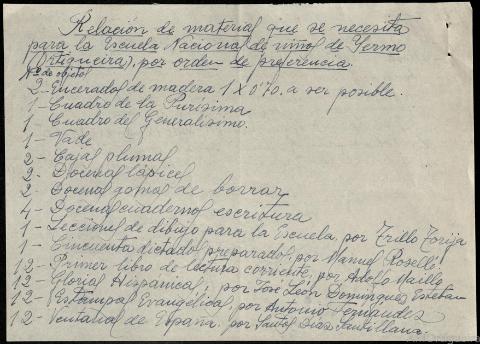 Relación de material que se necesita
para la Escuela Nacional de niños de Yermo
(Ortigueira), por orden de preferencia.
Nº de objetos
2 - Encerados de madera 1 X 0'70. a ser posible.
1 - Cuadro de la Purísima
1 - Cuadro del Generalísimo.
1 - Vade
2 - Cajas plumas
2 - Docenas lápices
2 - Docenas gomas de borrar
4 - Docenas cuadernos escritura
1 - Lecciones de dibujo para la Escuela, por Trillo Torija
1 - Cincuenta dictados preparados, por Manuel Roselló.
12 - Primer libro de lectura corriente, por Adolfo Maíllo
12 - Glorias Hispánicas, por José León Domínguez Esteban
12 - Estampas Evangélicas, por Antonio Fernández
12 - Ventanal de España. por Santos Díaz Santillana.